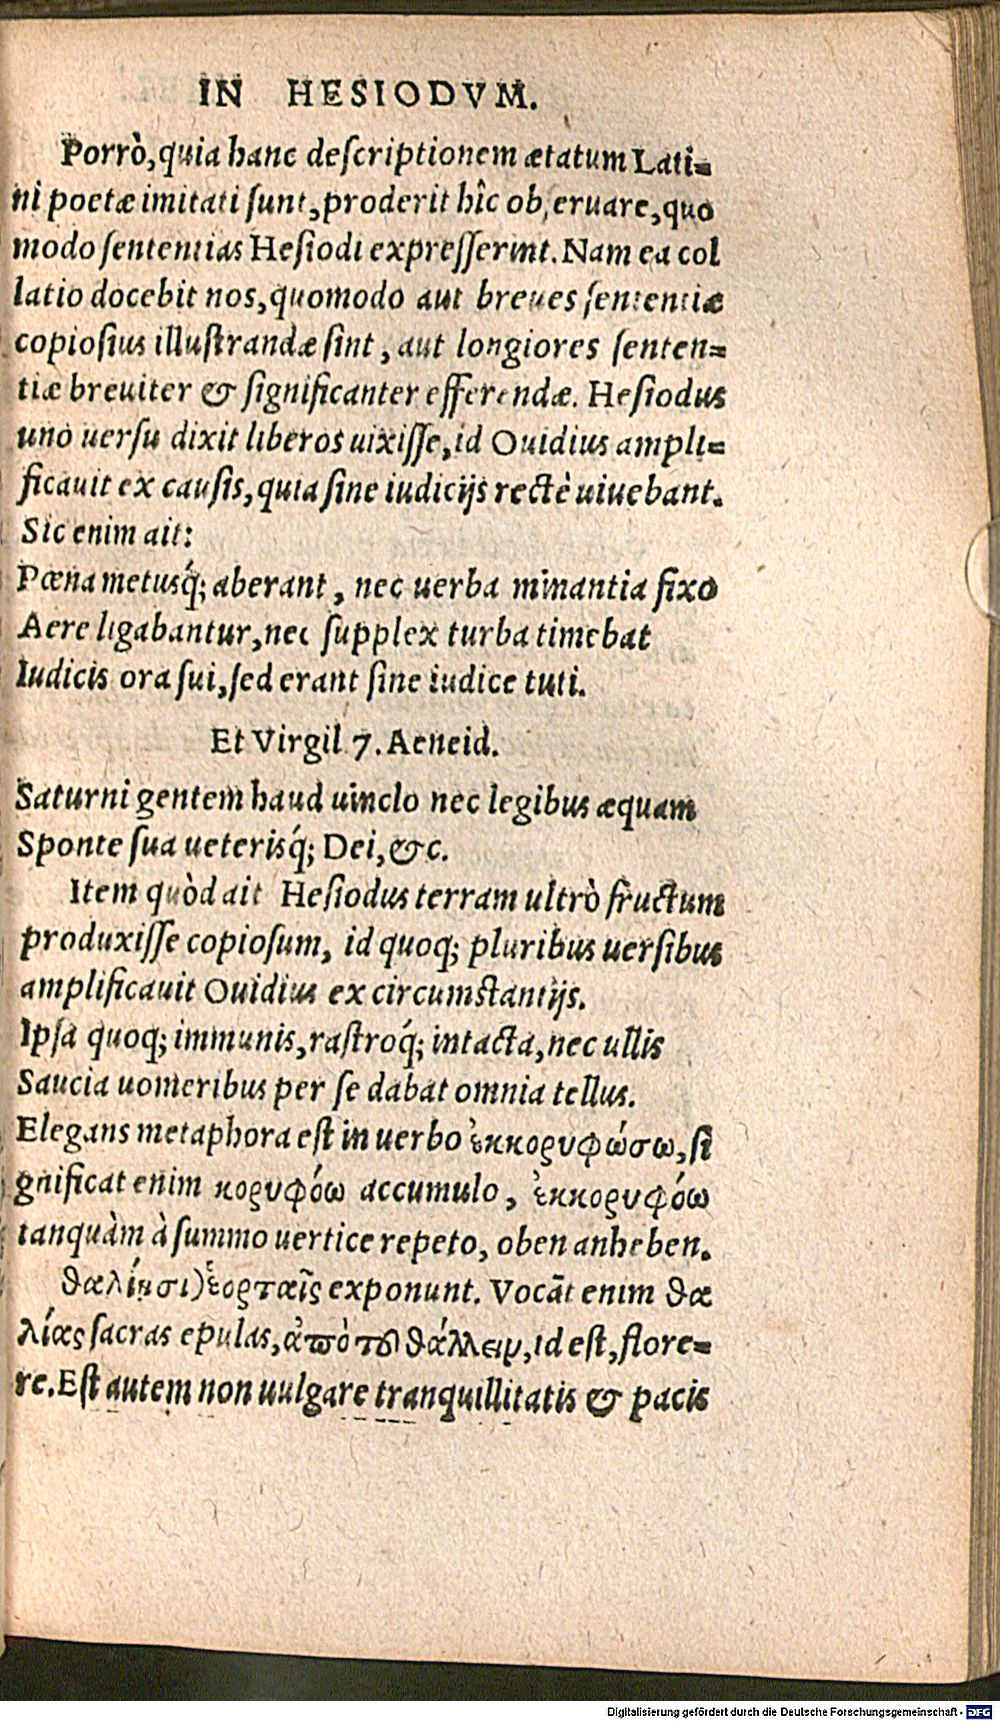 IN HESIODVM.
Porrò, quia hanc descriptionem ætatum Lati=
ni poetæ imitati sunt, proderit hîc obseruare, quo
modo sententias Hesiodi expresserint. Nam ea col
latio docebit nos, quomodo aut breues sententiæ
copiosius illustrandæ sint, aut longiores senten=
tiæ breuiter & significanter efferendæ. Hesiodus
uno uersu dixit liberos uixisse, id Ouidius ampli=
ficauit ex causis, quia sine iudicijs rectè uiuebant.
Sic enim ait:
Pœna metusq́; aberant, nec uerba minantia fixo
Aere ligabantur, nec supplex turba timebat
Iudicis ora sui, sed erant sine iudice tuti.
Et Virgil 7. Aeneid.
Saturni gentem haud uinclo nec legibus æquam
Sponte sua ueterisq́; Dei, &c.
Item quòd ait Hesiodus terram ultrò fructum
produxisse copiosum, id quoq; pluribus uersibus
amplificauit Ouidius ex circumstantijs.
Ipsa quoq; immunis, rastroq́; intacta, nec ullis
Saucia uomeribus per se dabat omnia tellus.
Elegans metaphora est in uerbo ἐκκορυφώσω, si
gnificat enim κορυφόω accumulo, ἐκκορυφόω
tanquàm à summo uertice repeto, oben anheben.
θαλίῃσι) ἑορταῖς exponunt. Vocāt enim θα
λίας sacras epulas, ἀπὸ τοῦ θάλλειν, id est, flore=
re. Est autem non uulgare tranquillitatis & pacis
Digitalisierung gefördert durch die Deutsche Forschungsgemeinschaft - DFG